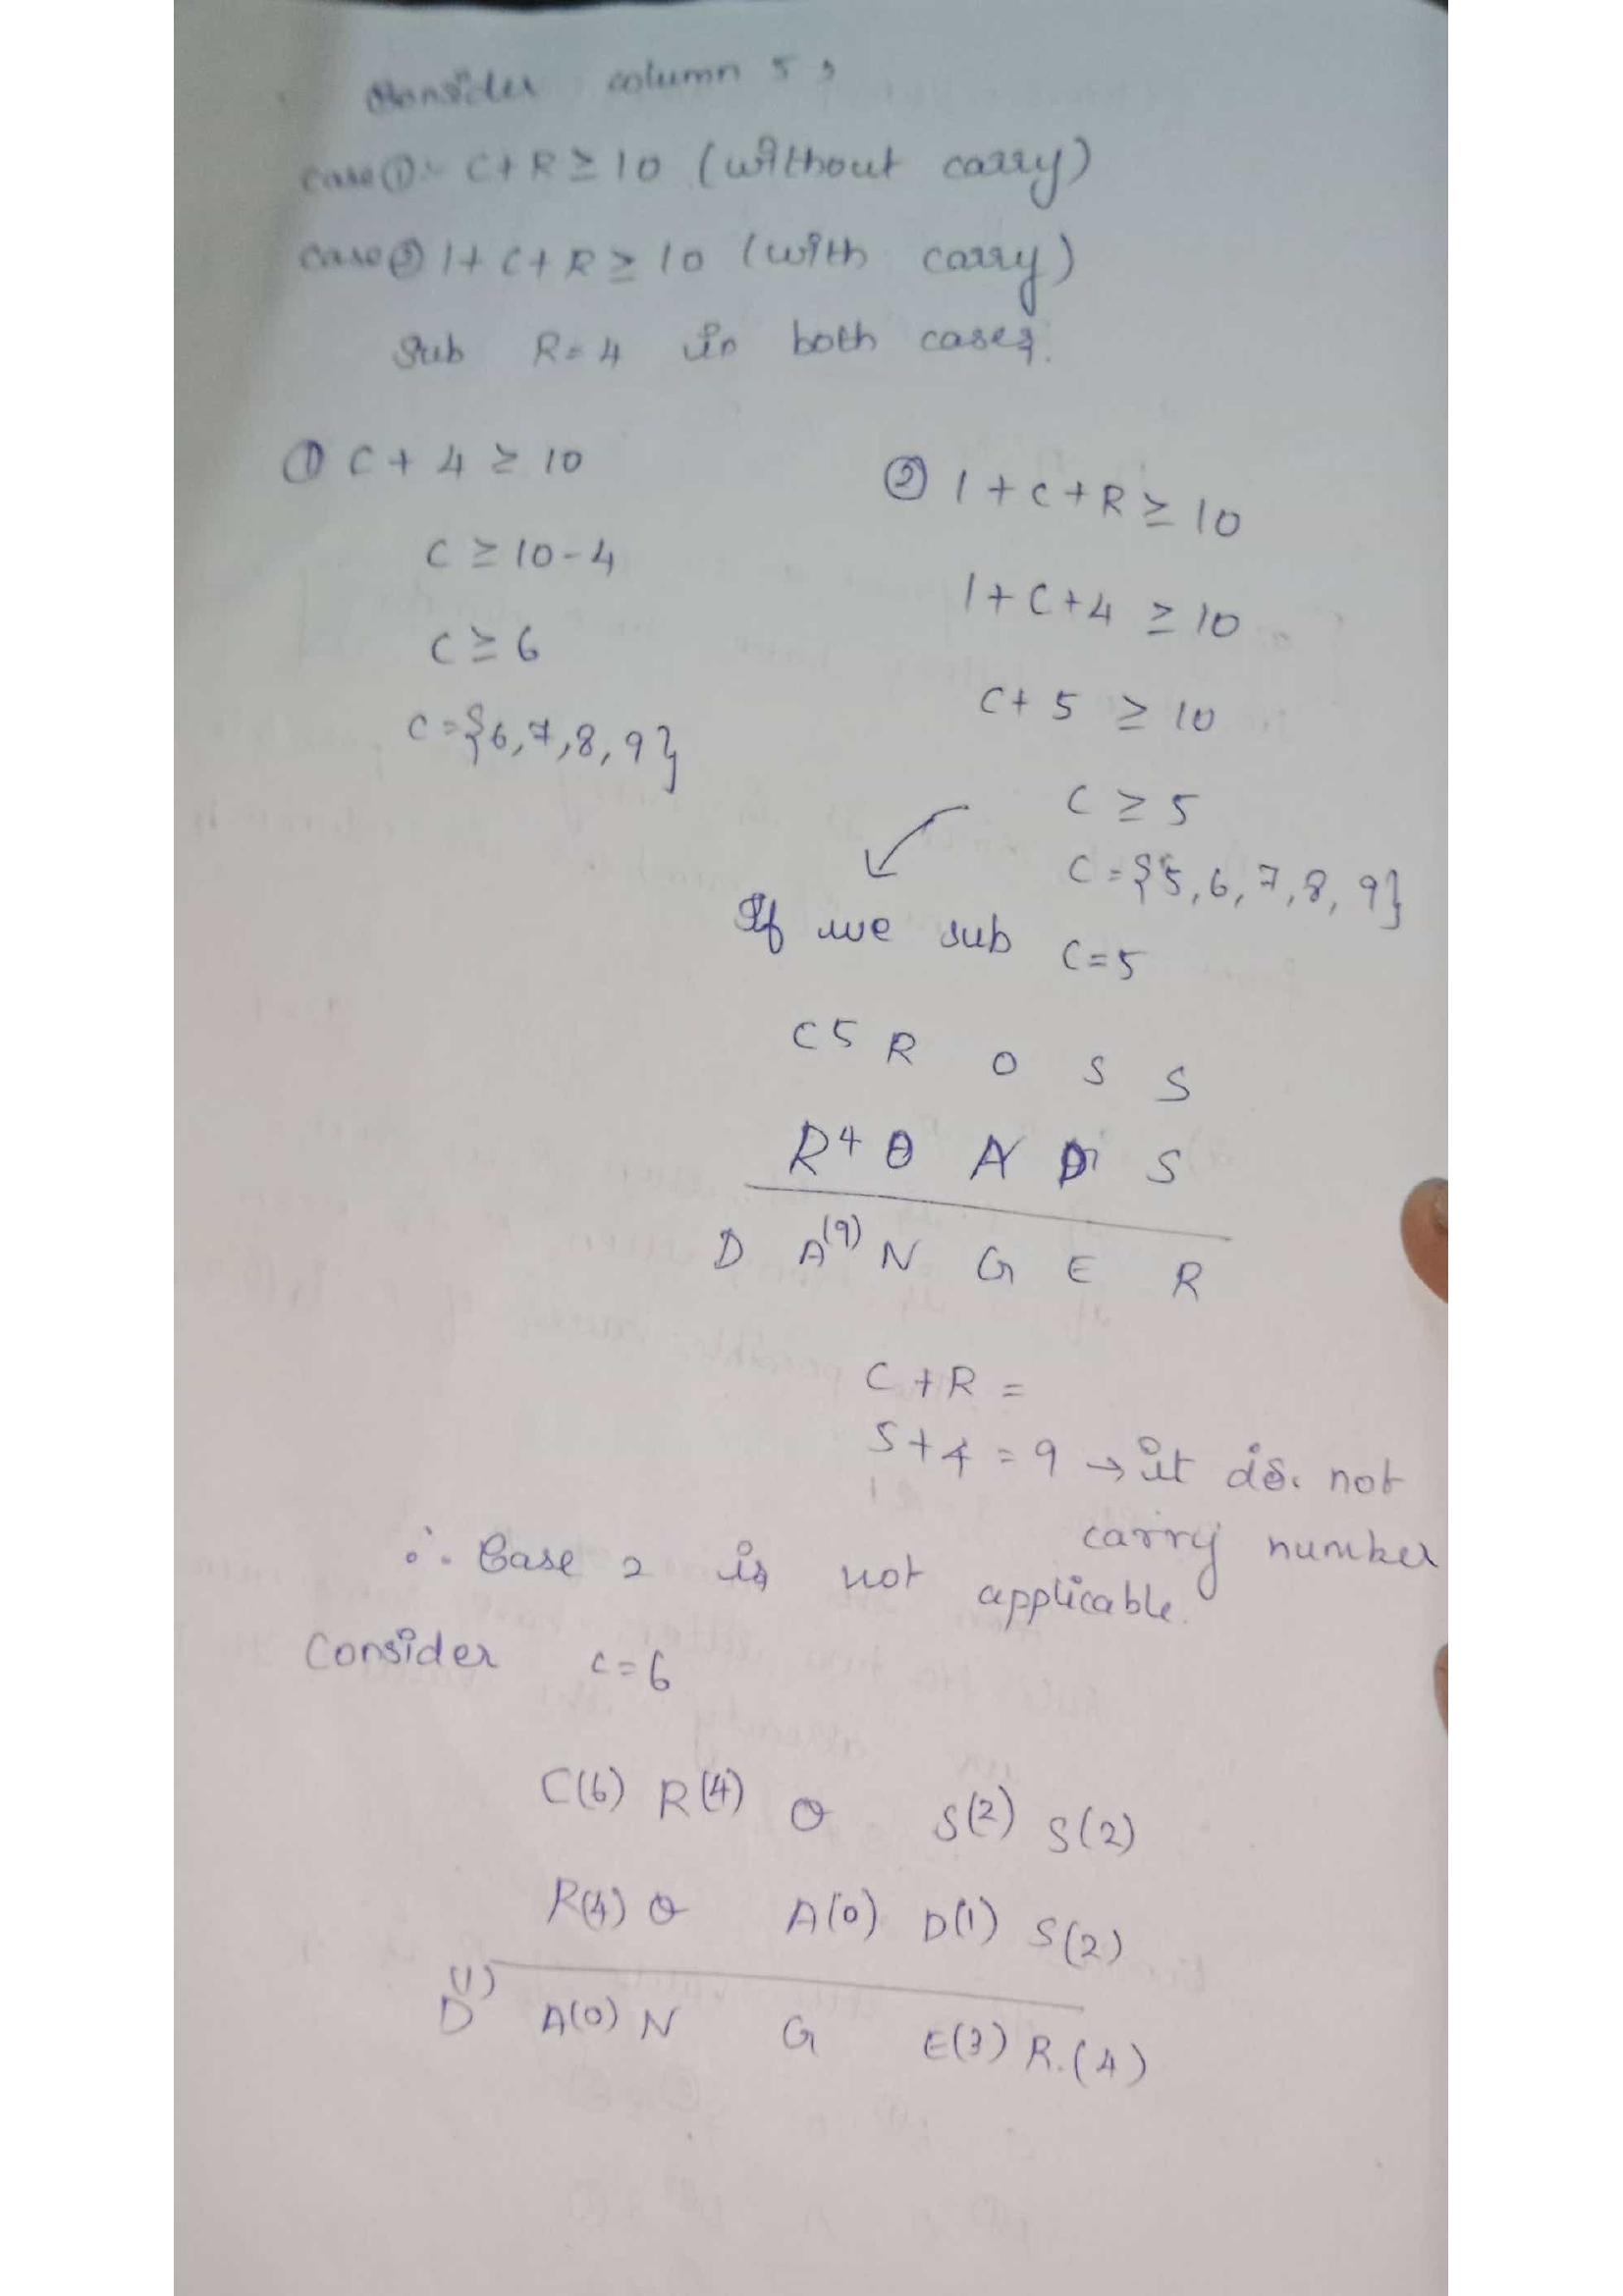 Consider column 5,
case ① :- C + R ≥ 10 (without carry)
case ② 1 + C + R ≥ 10 (with carry)
Sub R = 4 in both cases.
① C + 4 ≥ 10
C ≥ 10 - 4
C ≥ 6
C = {6, 7, 8, 9}
② 1 + C + R ≥ 10
1 + C + 4 ≥ 10
C + 5 ≥ 10
C ≥ 5
C = {5, 6, 7, 8, 9}
If we sub C = 5
C 5 R O S S
R 4 O A D 1 S
D A (9) N G E R
C + R =
5 + 4 = 9 → it is not
carry number
∴ Case 2 is not applicable.
Consider C = 6
C(6) R(4) O S(2) S(2)
R(4) O A(0) D(1) S(2)
D(1) A(0) N G E(3) R.(4)